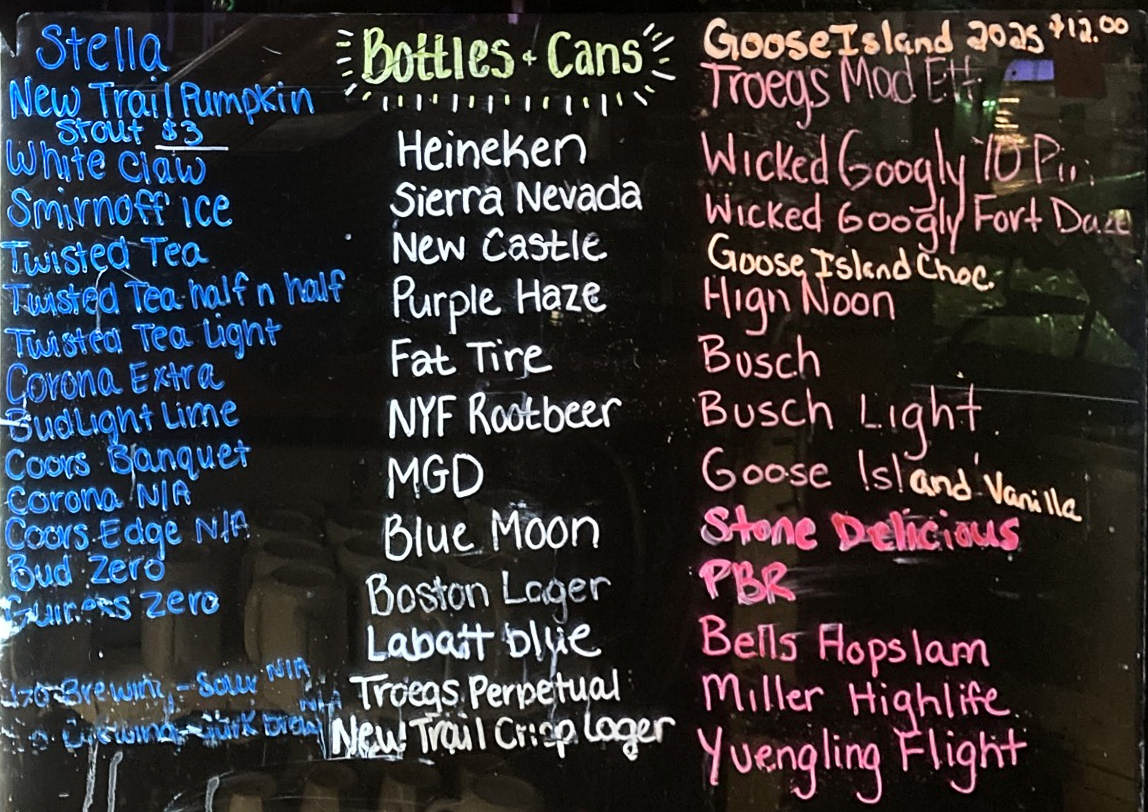 Stella
New Trail Pumpkin
Stout $3
White Claw
Smirnoff ICE
Twisted Tea
Twisted Tea half n half
Twisted Tea Light
Corona Extra
BudLight Lime
Coors Banquet
Corona N/A
Coors Edge N/A
Bud Zero
Guiness Zero
Brewing - Sour N/A
Bottles + Cans
Heineken
Sierra Nevada
New Castle
Purple Haze
Fat Tire
NYF Rootbeer
MGD
Blue Moon
Boston Lager
Labatt blue
Troegs Perpetual
New Trail Crisp Lager
Goose Island 2025 $12.00
Troegs Mad Elf
Wicked Googly 10 Pin
Wicked Googly Fort Daze
Goose Island Choc.
High Noon
Busch
Busch Light
Goose Island Vanilla
Stone Delicious
PBR
Bells Hopslam
Miller Highlife
Yuengling Flight